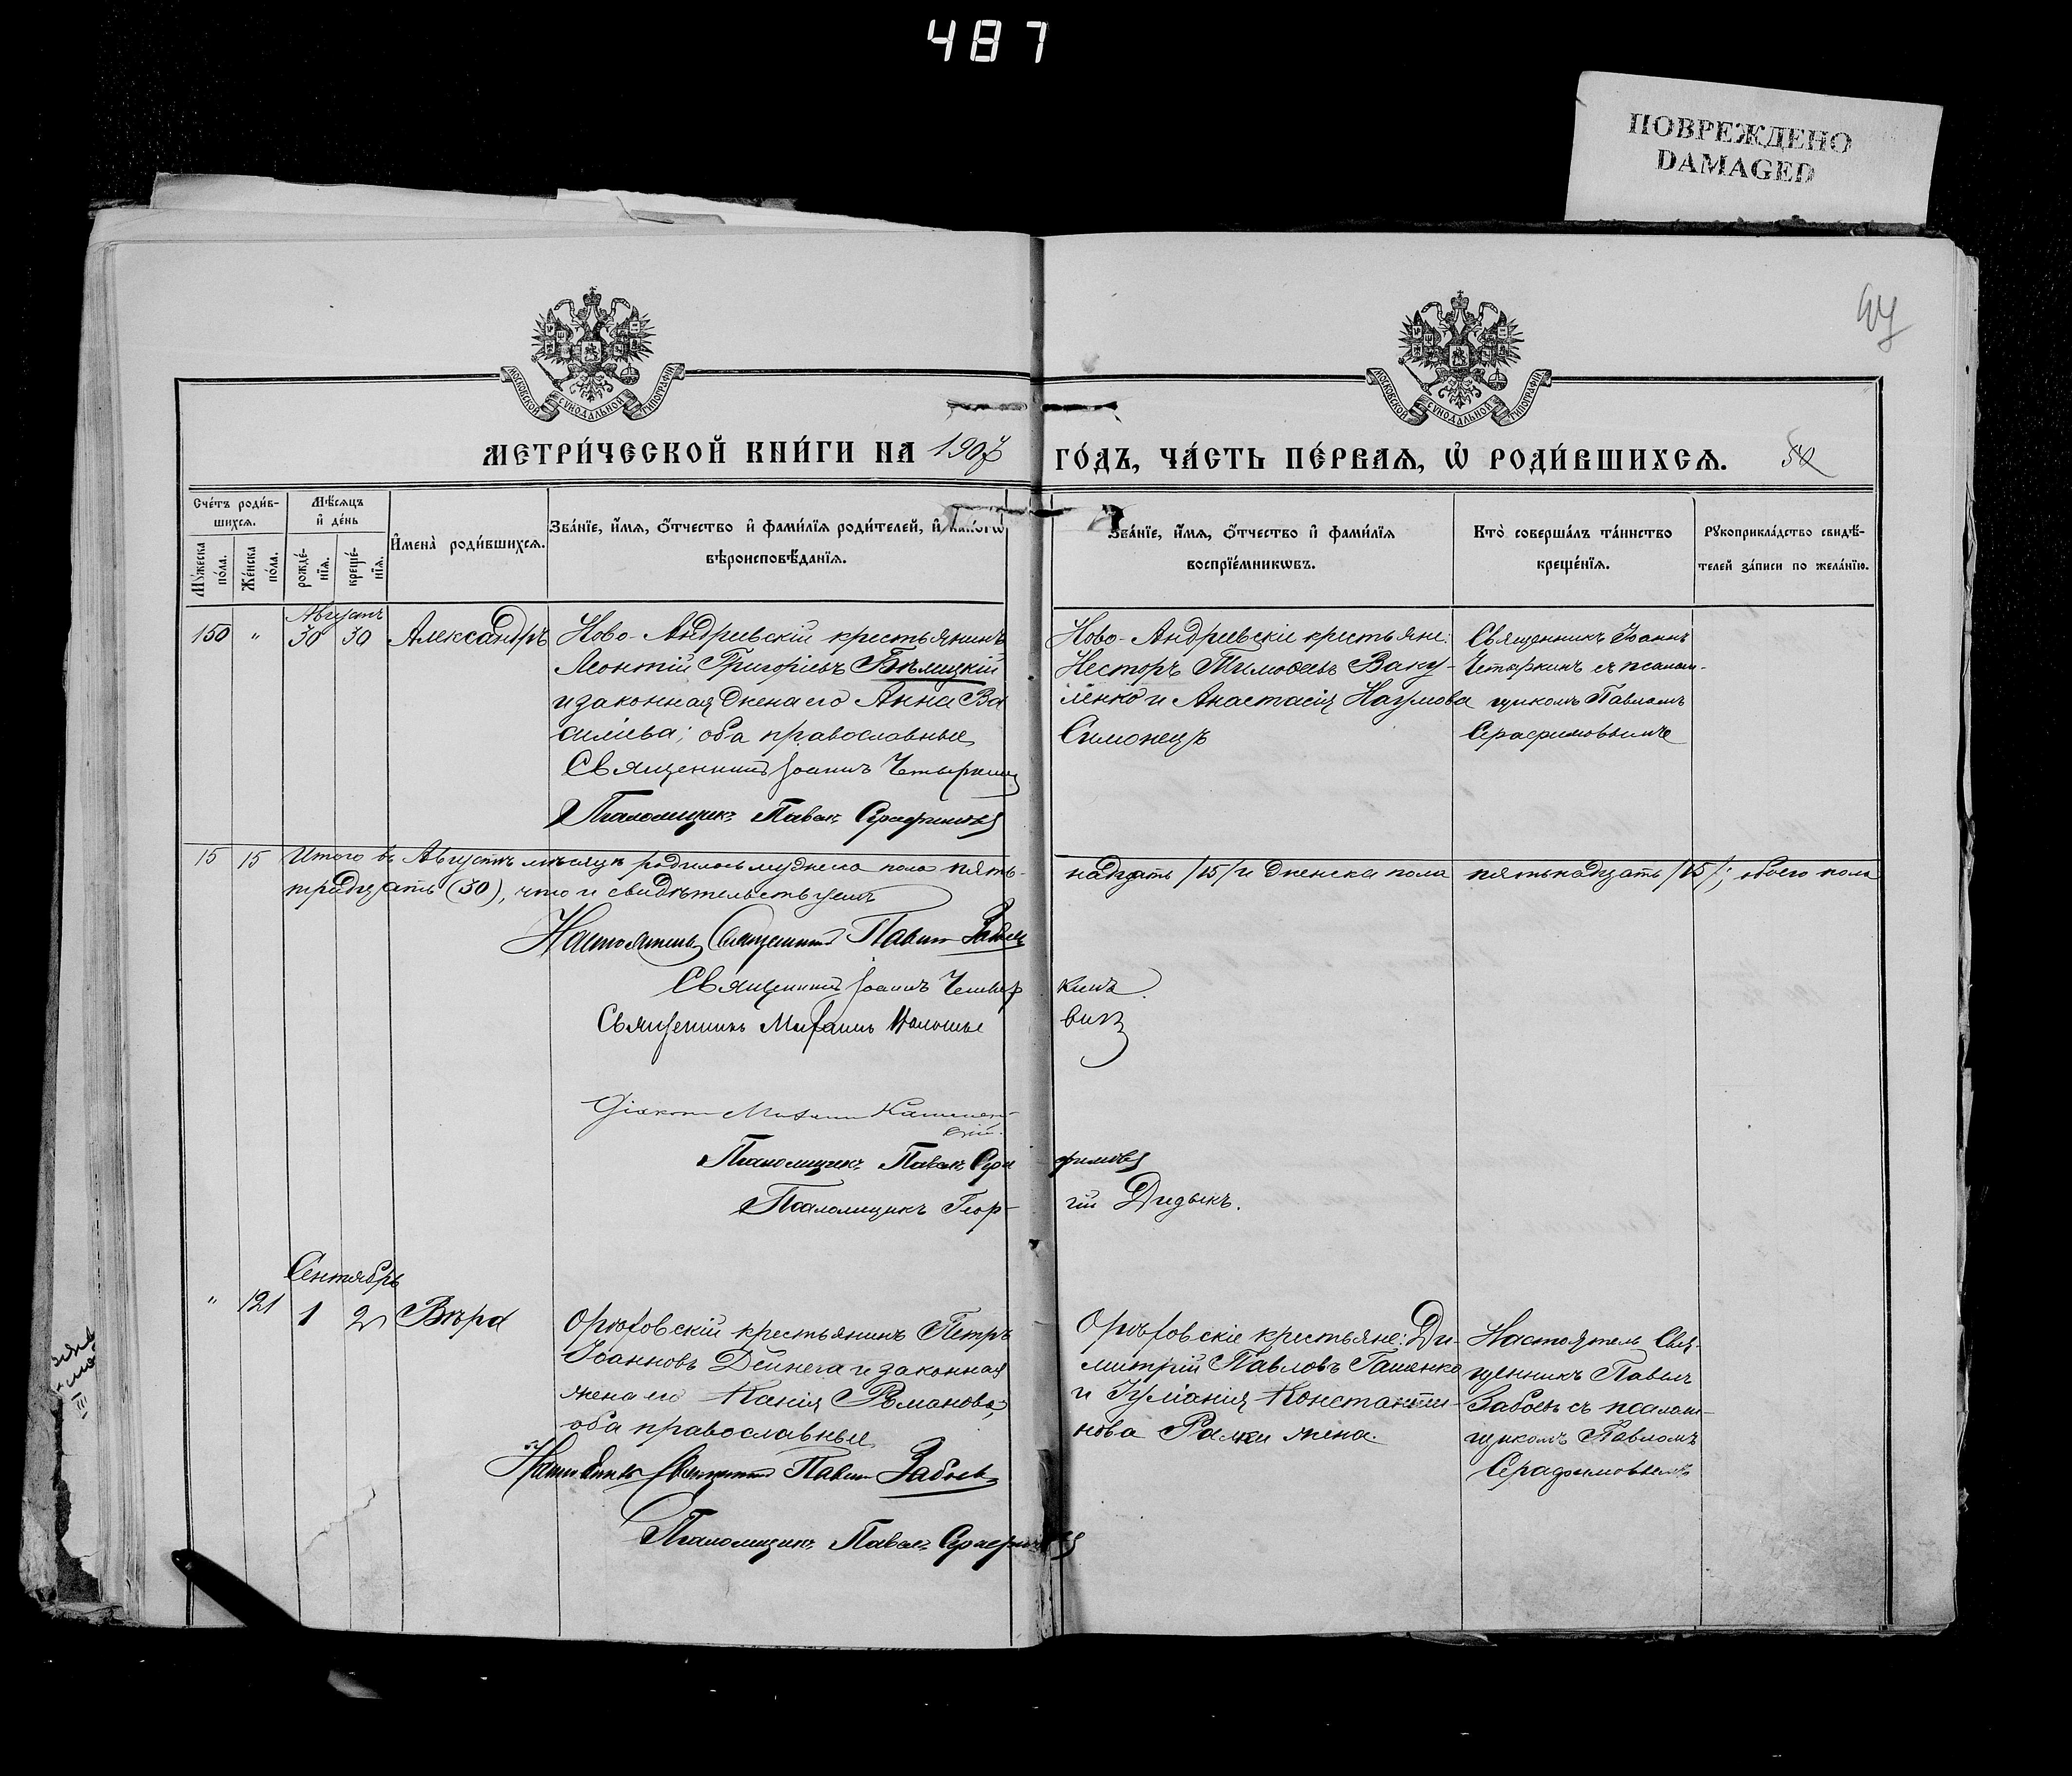 487
ПОВРЕЖДЕНО
DAMAGED
МОСКОВСКОЙ СѴНОДАЛЬНОЙ ТИПОГРАФІИ
МОСКОВСКОЙ СѴНОДАЛЬНОЙ ТИПОГРАФІИ
МЕТРИ́ЧЕСКОЙ КНИ́ГИ НА 1907 ГО́ДЪ, ЧА́СТЬ ПЕ́РВАѦ, Ѡ҆ РОДИ́ВШИХСѦ. 50
Сче́тъ роди́в-
шихсѧ.
Мꙋ́жеска по́ла.
Же́нска по́ла.
Мѣ́сѧцъ
и҆ де́нь
рожде́-
нїѧ.
креще́-
нїѧ.
И҆мена̀ роди́вшихсѧ.
Зва́нїе, и҆́мѧ, ѻ҆́тчество и҆ фами́лїѧ роди́телей, и҆ како́гѡ
вѣроисповѣ́данїѧ.
Зва́нїе, и҆́мѧ, ѻ҆́тчество и҆ фами́лїѧ
воспрїе́мникѡвъ.
Кто̀ соверша́лъ та́инство
креще́нїѧ.
Рꙋкоприкла́дство свидѣ́-
телей за́писи по жела́нїю.
Августъ
150 " 30 30 Александръ
Ново-Андреевскій крестьянинъ
Леонтій Григорьевъ Бѣлицкій
и законная жена его Анна Ва
сильева; оба православные
Священникъ Іоаннъ Четыркинъ
Псаломщикъ Павелъ Серафимовъ
Ново-Андреевскіе крестьяне:
Несторъ Тимофеевъ Ваку-
ленко и Анастасія Наумова
Симонецъ
Священникъ Іоаннъ
Четыркинъ съ псалом-
щикомъ Павломъ
Серафимовымъ
15 15 Итого въ Августѣ мѣсяцѣ родилось мужеска пола пять-
надцать /15/ и женска пола пятьнадцать /15/; обоего пола
тридцать (30), что и свидѣтельствуемъ
Настоятель Священникъ Павелъ Забоевъ
Священникъ Іоаннъ Четыркинъ.
Священникъ Михаилъ
вичъ
Діаконъ Каминет-
скій.
Псаломщикъ Павелъ Серафимовъ
Псаломщикъ Георгій Дидыкъ.
Сентябрь
" 121 1 2 Вѣра
Орѣховскій крестьянинъ Петръ
Іоанновъ Дейнега и законная
жена его Романова,
оба православные
Настоятель Священникъ Павелъ Забоевъ
Псаломщикъ Павелъ Серафимовъ
Орѣховскіе крестьяне: Ди-
митрій Павловъ Гашенко
и Іуліанія Константи-
нова жена.
Настоятель Свя-
щенникъ Павелъ
Забоевъ съ псалом-
щикомъ Павломъ
Серафимовымъ